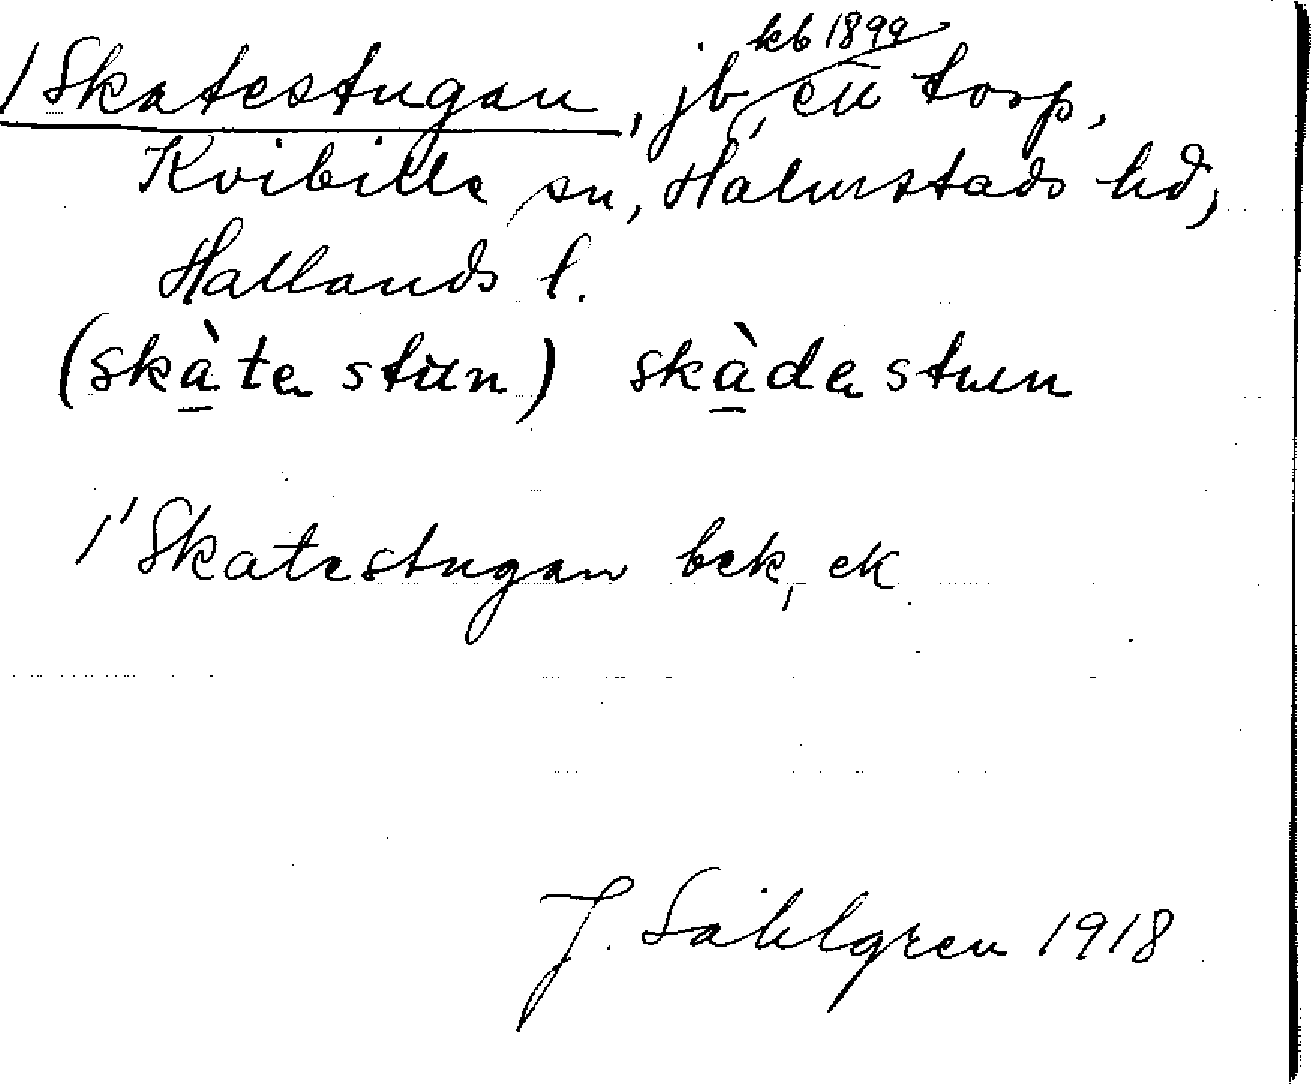 kb 1899
/ Skatestugan, jb, ett torp,
Kvibille sn, Halmstads hd,
Hallands l.
(skàte stün) skàde stuen
/ Skatestugan bek, ek
J. Sahlgren 1918